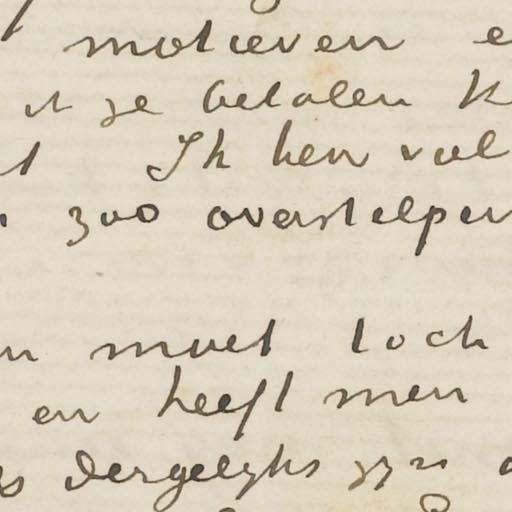 motieven e
it ze betalen k
t Ik ben vol
zoo overstelpen
n moet toch
en heeft men
s dergelyks zyn